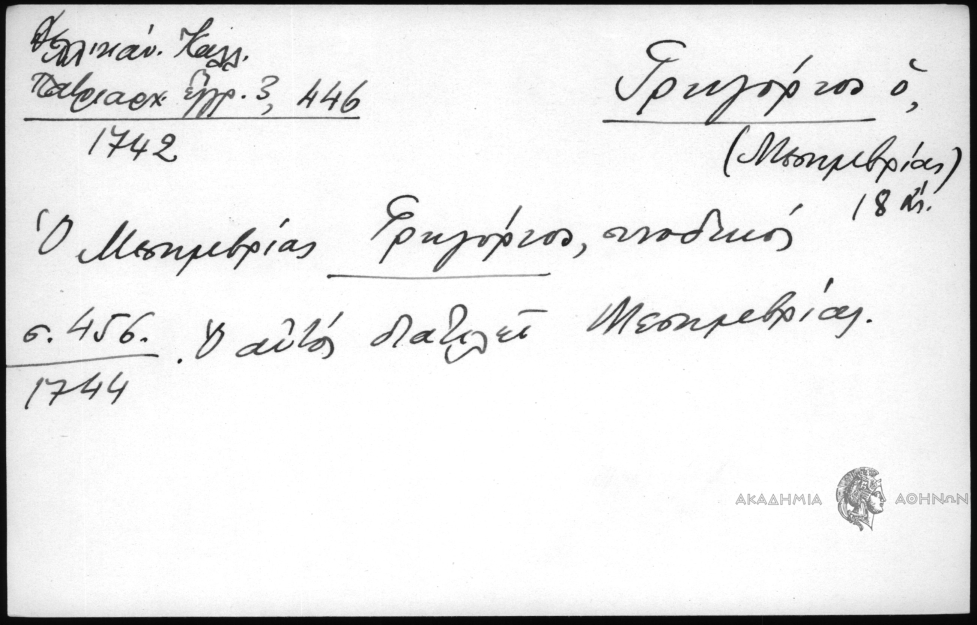 Δελικάν. Καλλ.
Πατριαρχ. ἔγγρ. 3, 446
1742
Γρηγόριος ὁ,
(Μεσημβρίας)
18 αἰ.
Ὁ Μεσημβρίας Γρηγόριος, συνοδικός
σ. 456. Ὁ αὐτός διατελεῖ Μεσημβρίας.
1744
ΑΚΑΔΗΜΙΑ ΑΘΗΝΩΝ